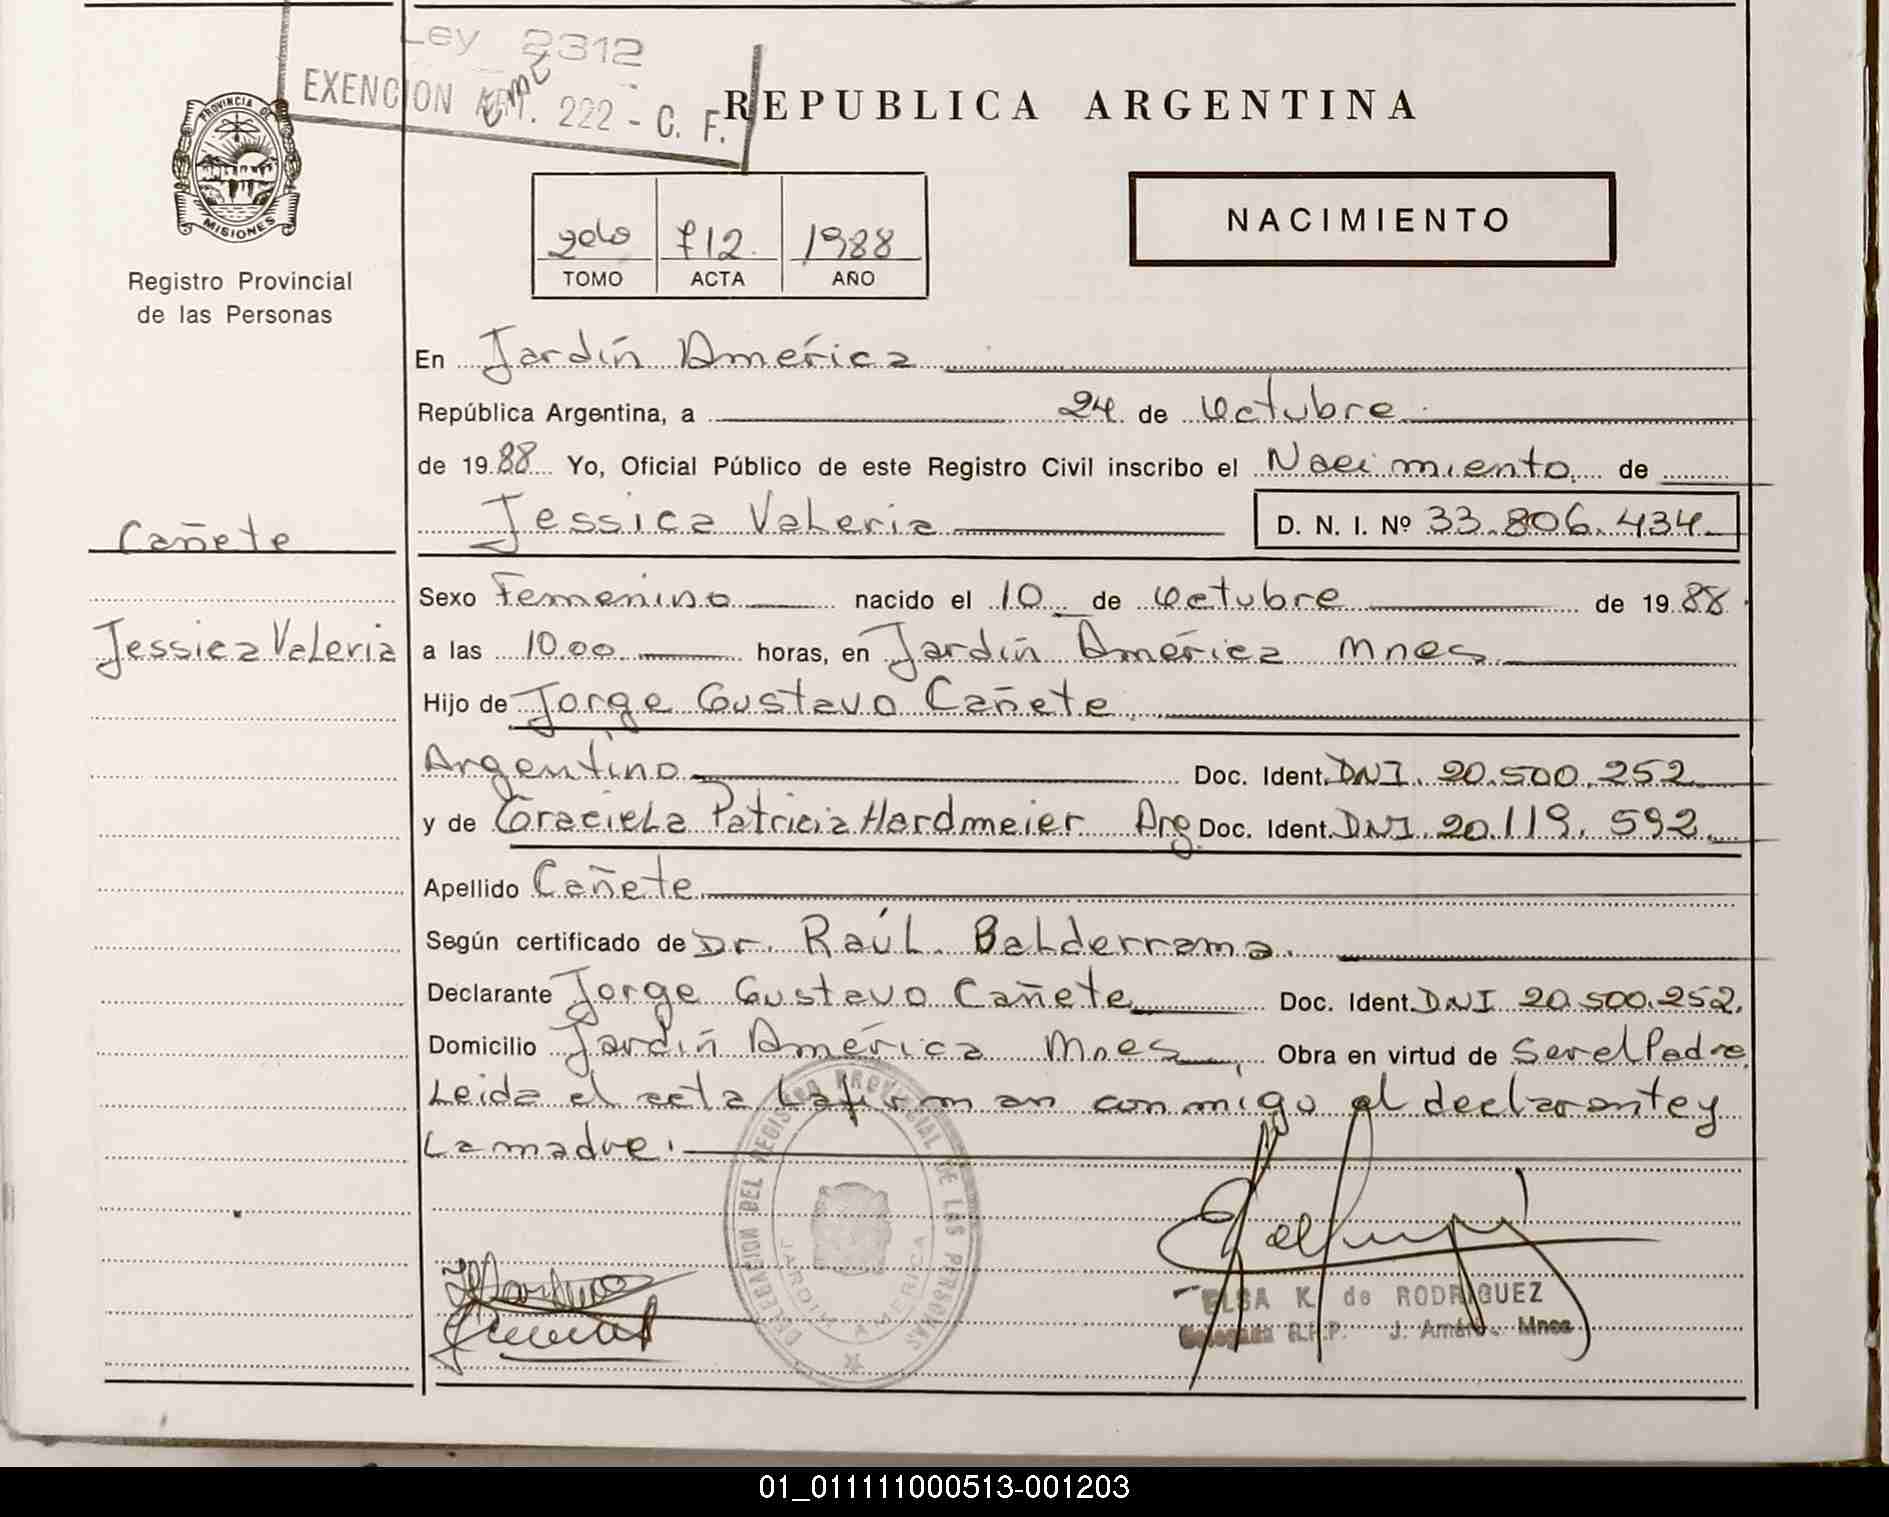 Ley 2312
EXENCION 222 - C. F.
REPUBLICA ARGENTINA
PROVINCIA DE
MISIONES
Registro Provincial
de las Personas
2do 712. 1988
TOMO ACTA AÑO
NACIMIENTO
En Jardín América
República Argentina, a 24 de Octubre
de 1988 Yo, Oficial Público de este Registro Civil inscribo el Nacimiento de
Jessica Valeria D. N. I. Nº 33.806.434
Cañete
Jessica Valeria
Sexo Femenino nacido el 10 de Octubre de 1988
a las 10.00 horas, en Jardín América Mnes
Hijo de Jorge Gustavo Cañete
Argentino Doc. Ident. DNI. 20.500.252
y de Graciela Patricia Hardmeier Arg. Doc. Ident. DNI. 20.119.592
Apellido Cañete
Según certificado de Dr. Raúl Balderrama.
Declarante Jorge Gustavo Cañete Doc. Ident. DNI 20.500.252.
Domicilio Jardín América Mnes, Obra en virtud de Ser el Padre
Leida el acta la firman conmigo el declarante y
La madre.
DELEGACION DEL REGISTRO PROVINCIAL DE LAS PERSONAS
JARDIN AMERICA
ELSA K. de RODRIGUEZ
Delegada R.P.P. J. Amér. Mnes
01_011111000513-001203